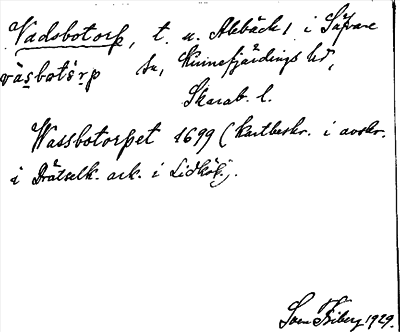 Vadsbotorp, t. u. Alebäck 1 i Säfvare
väsbotorp sn, Kinnefjärdings hd,
Skarab. l.
Wassbotorpet 1699 (Kartbeskr. i avskr.
i Drätselk. ark. i Lidköp.).
Sven Friberg 1929.